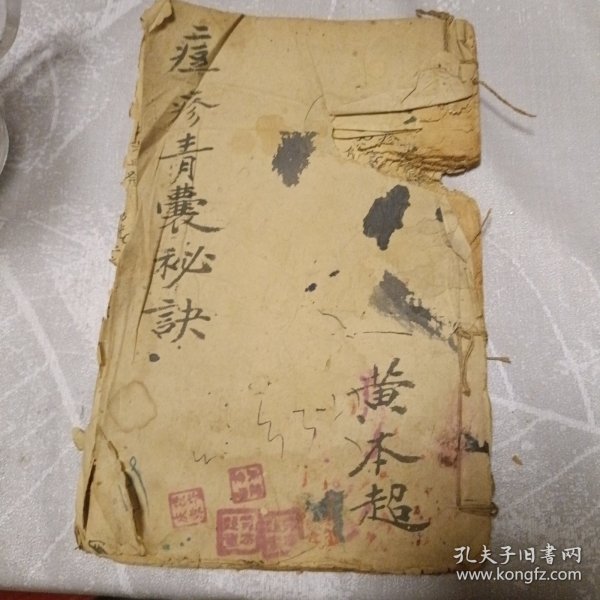 痘疹青囊秘訣
黄本超
孔夫子旧書网
www.kongfz.com